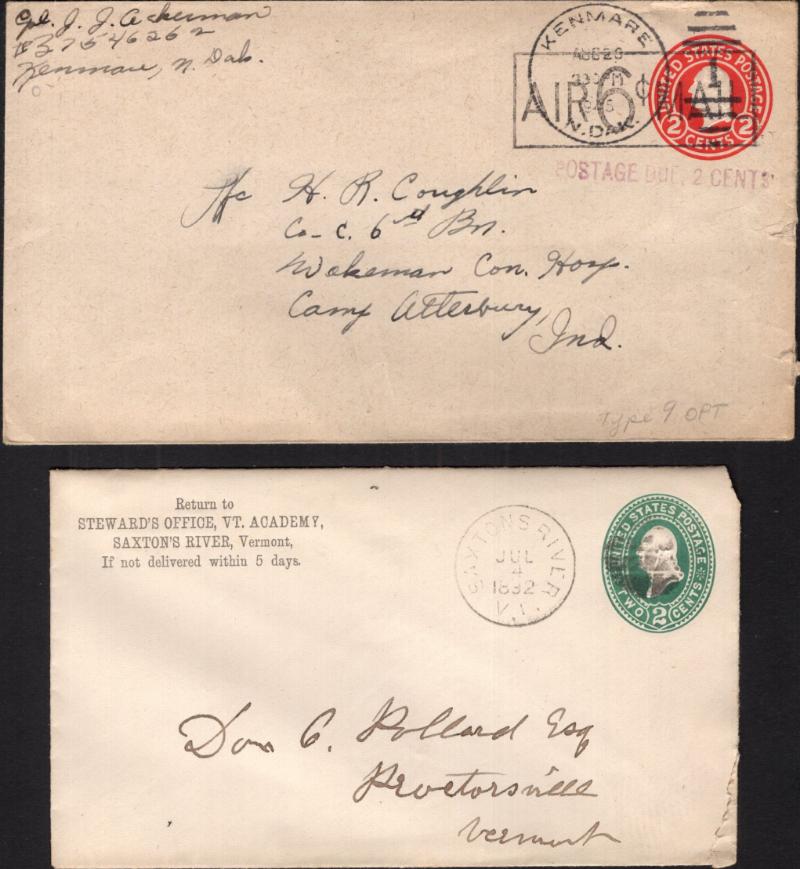 Cpl. J. J. Ackerman
37546262
Kenmare, N. Dak.
KENMARE
AUG 20
N. DAK.
AIR 6¢ MAIL
UNITED STATES POSTAGE
1
2 CENTS 2
POSTAGE DUE, 2 CENTS
H. R. Coughlin
Co- C. 6th Bn.
Wakeman Con. Hosp.
Camp Atterbury,
Ind.
Type 9 OPT
Return to
STEWARD'S OFFICE, VT. ACADEMY,
SAXTON'S RIVER, Vermont,
If not delivered within 5 days.
SAXTONS RIVER
JUL
4
1892
VT.
UNITED STATES POSTAGE
TWO 2 CENTS
Don C. Pollard Esq
Proctorsville
Vermont